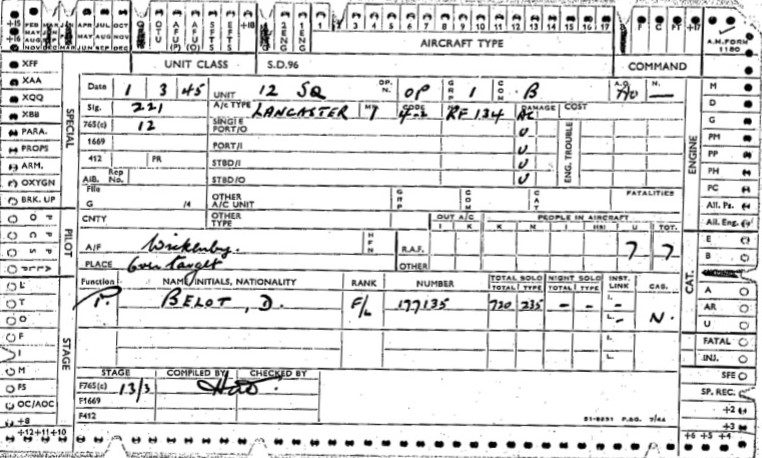 +15 FEB MAR APR JUL OCT
+16 MAY JUN
AUG SEP
NOV DEC JUN SEP DEC
OTU AFU (P) AFU (O) SFTS EFTS +18 2 ENG 1 ENG
1 2 3 4 5 6 7 8 9 10 11 12 13 14 15 16 17
F C PT +17
A.M. FORM 1180
AIRCRAFT TYPE
UNIT CLASS S.D.96 COMMAND
XFF
XAA
XQQ
XBB
PARA.
PROPS
ARM.
OXYGN
BRK. UP
SPECIAL
PILOT
STAGE
Date 1 3 45 UNIT 12 SQ OP. N. OP GRP 1 COM B A.O. N. —
Sig. 221 A/c TYPE LANCASTER MK 1 CODE RF 134 DAMAGE AC COST
765(c) 12 SINGLE PORT/O U
1669 PORT/I U
412 PR STBD/I U
AIB. Rep No. STBD/O U
ENG. TROUBLE
File G /4 OTHER A/C UNIT GRP COM CAT FATALITIES
CNTY OTHER TYPE OUT A/C PEOPLE IN AIRCRAFT
I K K M I HRI U TOT.
A/F Wickenby. HFN R.A.F. 7 7
PLACE Over target OTHER
Function NAME, INITIALS, NATIONALITY RANK NUMBER TOTAL SOLO NIGHT SOLO INST. LINK CAS.
TOTAL TYPE TOTAL TYPE
P BELOT, D. F/L 177135 720 235 — — I. — L. — N.
I.
L.
STAGE COMPILED BY CHECKED BY
F765(c) 13/3
F1669
F412
L
T
O
F
I
M
FS
OC/AOC
+8
+12 +11 +10
M
D
G
PM
PP
PH
PC
All. Ps.
All. Eng.
ENGINE
E
B
A
AR
U
CAT.
FATAL
INJ.
SFE
SP. REC.
+2
+3
+6 +5 +4